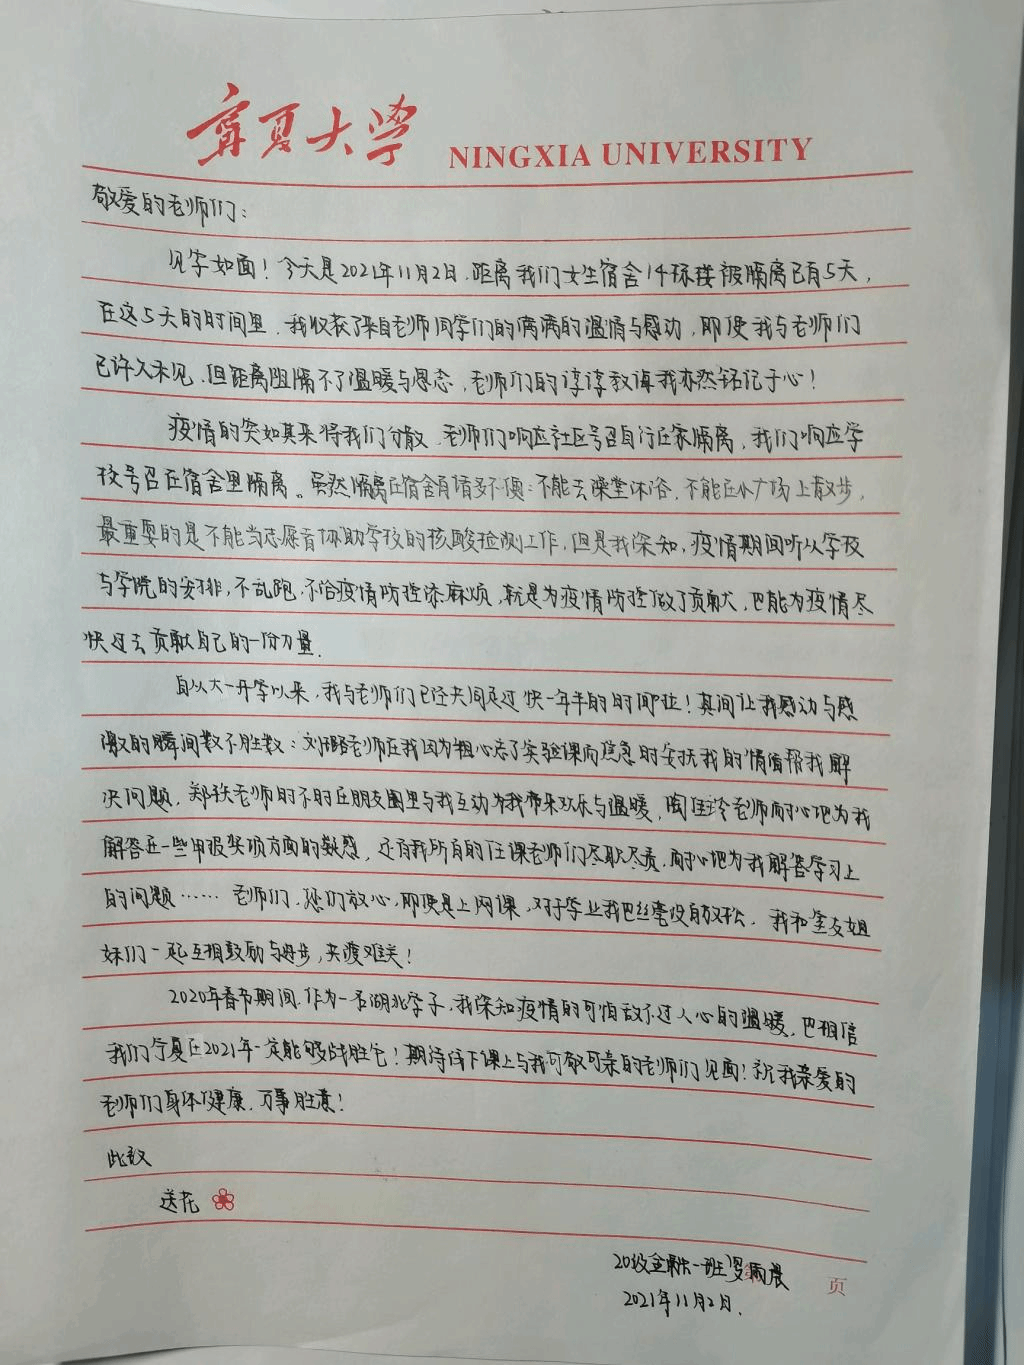 宁夏大学 NINGXIA UNIVERSITY
敬爱的老师们：
见字如面！今天是2021年11月2日，距离我们女生宿舍14栋楼被隔离已有5天，
在这5天的时间里，我收获了来自老师同学们的满满的温情与感动，即使我与老师们
已许久未见，但距离阻隔不了温暖与思念，老师们的谆谆教诲我亦然铭记于心！
疫情的突如其来将我们分散，老师们响应社区号召自行在家隔离，我们响应学
校号召在宿舍里隔离。虽然隔离在宿舍有诸多不便：不能去澡堂沐浴，不能在小广场上散步，
最重要的是不能当志愿者协助学校的核酸检测工作，但是我深知，疫情期间听从学校
与学院的安排，不乱跑，不给疫情防控添麻烦，就是为疫情防控做了贡献，也能为疫情尽
快过去贡献自己的一份力量．
自从大一开学以来，我与老师们已经共同走过快一年半的时间啦！其间让我感动与感
激的瞬间数不胜数：刘璐老师在我因为粗心忘了实验课而焦急时安抚我的情绪帮我解
决问题，郑轶老师时不时在朋友圈里与我互动为我带来欢乐与温暖，陶佳玲老师耐心地为我
解答在一些申报奖项方面的疑惑，还有我所有的任课老师们尽职尽责，耐心地为我解答学习上
的问题…… 老师们，您们放心，即便是上网课，对于学业我也丝毫没有放松，我和室友姐
妹们一起互相鼓励与进步，共渡难关！
2020年春节期间，作为一名湖北学子，我深知疫情的可怕敌不过人心的温暖，也相信
我们宁夏在2021年一定能够战胜它！期待线下课上与我可敬可亲的老师们见面！祝我亲爱的
老师们身体健康，万事胜意！
此致
送花
20级金融一班 罗雨晨
页
2021年11月2日．